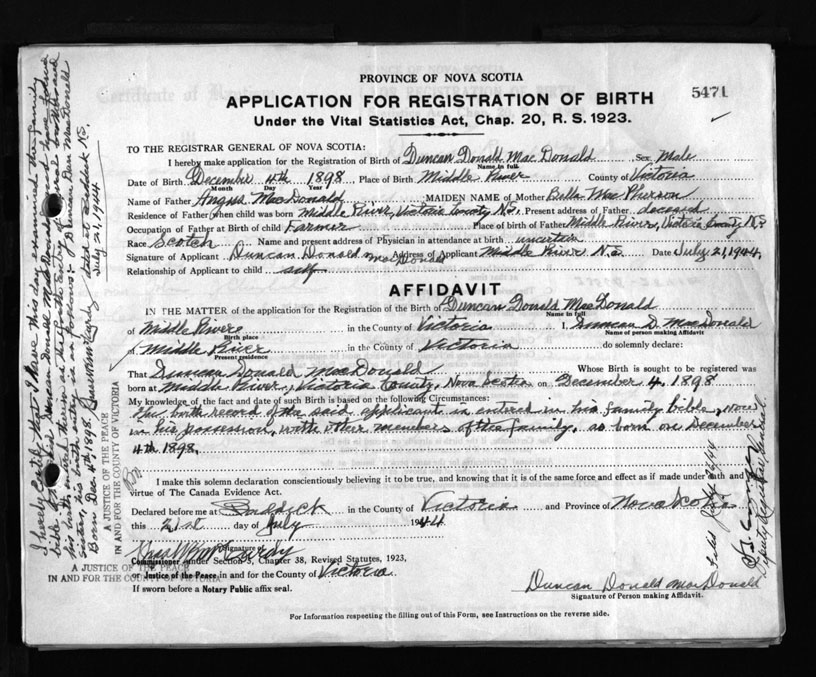 PROVINCE OF NOVA SCOTIA
5471
APPLICATION FOR REGISTRATION OF BIRTH
Under the Vital Statistics Act, Chap. 20, R. S. 1923.
TO THE REGISTRAR GENERAL OF NOVA SCOTIA:
I hereby make application for the Registration of Birth of Duncan Donald MacDonald Sex Male
Name in full
Date of Birth December 4th 1898 Place of Birth Middle River County of Victoria
Month Day Year
Name of Father Angus MacDonald MAIDEN NAME of Mother Bella MacPherson
Residence of Father when child was born Middle River, Victoria County N.S. Present address of Father deceased
Occupation of Father at Birth of child Farmer Place of birth of Father Middle River, Victoria County N.S.
Race Scotch Name and present address of Physician in attendance at birth uncertain
Signature of Applicant Duncan Donald MacDonald Address of Applicant Middle River N.S. Date July 21, 1944
Relationship of Applicant to child self
AFFIDAVIT
IN THE MATTER of the application for the Registration of the Birth of Duncan Donald MacDonald
Name in full
of Middle River in the County of Victoria I, Duncan D. MacDonald
Birth place Name of person making Affidavit
of Middle River in the County of Victoria do solemnly declare:
Present residence
That Duncan Donald MacDonald Whose Birth is sought to be registered was
born at Middle River, Victoria County, Nova Scotia on December 4, 1898
My knowledge of the fact and date of such Birth is based on the following Circumstances:
The birth record of the said applicant is entered in his family bible, now
in his possession, with other members of the family, as born on December
4th 1898.
I make this solemn declaration conscientiously believing it to be true, and knowing that it is of the same force and effect as if made under oath and by
virtue of The Canada Evidence Act.
Declared before me at Baddeck in the County of Victoria and Province of Nova Scotia
this 21st day of July 1944
Signature of
Commissioner under Section 5, Chapter 38, Revised Statutes, 1923,
or Justice of the Peace in and for the County of Victoria
If sworn before a Notary Public affix seal.
A JUSTICE OF THE PEACE
IN AND FOR THE COUNTY OF VICTORIA
Duncan Donald MacDonald
Signature of Person making Affidavit.
For Information respecting the filling out of this Form, see Instructions on the reverse side.
I hereby certify that I have this day examined the family
bible of Duncan Donald MacDonald and have found
his birth entered therein
Born Dec. 4th, 1898.
dated at Baddeck N.S.
July 21, 1944
A JUSTICE OF THE PEACE
IN AND FOR THE COUNTY OF VICTORIA
Deputy Registrar General